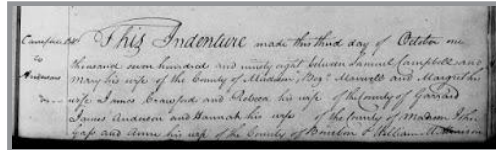 Campbell &c
to
Anderson
This Indenture made this third day of October one
thousand seven hundred and ninety eight between Samuel Campbell and
Mary his wife of the County of Maddison, Beg. Maxwell and Margret his
wife James Crawford and Rebeca his wife of the County of Garrard
James Anderson and Hannah his wife of the County of Madison John
Gass and Anne his wife of the County of Bourbon & William